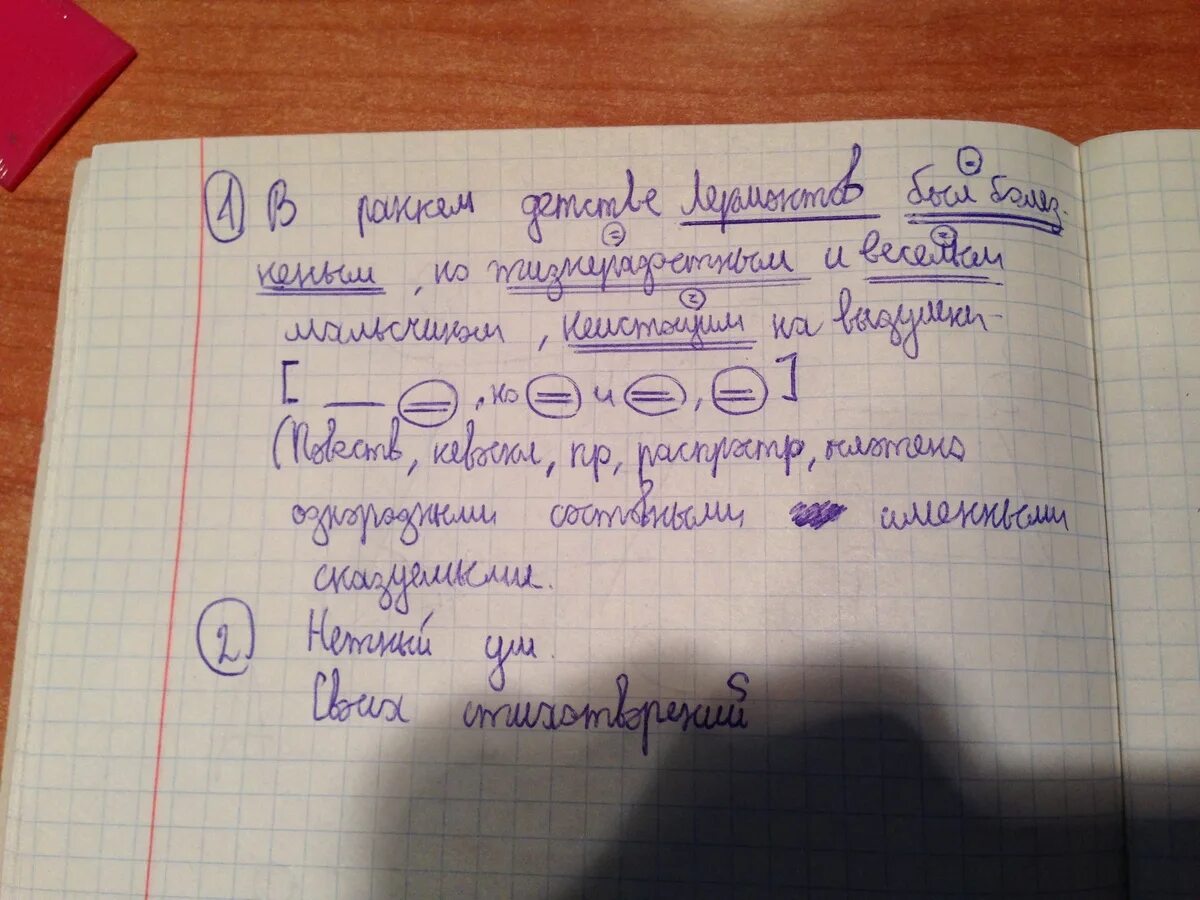 1 В раннем детстве Лермонтов был болез-
неным, но жизнерадостным и веселым
мальчиком, неистощим на выдумки.
[ __ = , но = и = , = ]
(Повеств, невоскл, пр, распростр, осложнено
однородными составными именными
сказуемыми.
2 Нежный ум.
Своих стихотворений